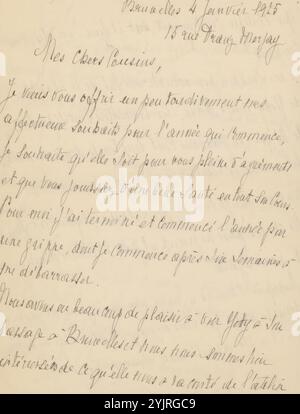 Bruxelles 4 Janvier 1925
15 rue Franz Merjay
Mes Chers Cousins,
Je viens vous offrir un peu tardivement mes
affectueux souhaits pour l'année qui commence,
je souhaite qu'elle soit pour vous pleine d'agréments
et que vous jouissiez d'une bonne santé en tout
Pour moi, j'ai terminé et commencé l'année par
une grippe, dont je commence après six semaines à
me débarrasser.
Nous avons eu beaucoup de plaisir à voir à son
passage à Bruxelles et nous nous sommes bien
intéressés de ce qu'elle nous a raconté de
alamy
Image ID: 2YJRGC9
www.alamy.com